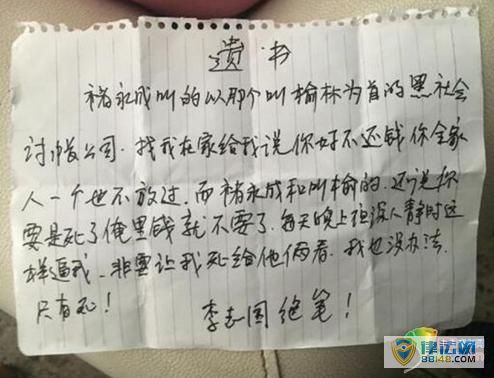 遗书
褚永成叫的以那个叫榆林为首的黑社会
讨账公司.找我在家给我说你好不还钱你全家
人一个也不放过.而褚永成和叫榆的.还说你
要是死了俺里钱就不要了.每天晚上在没人静时这
样逼我.非要让我死给他俩看.我也没办法.
只有死!
李志国绝笔!
律法网
88148.com